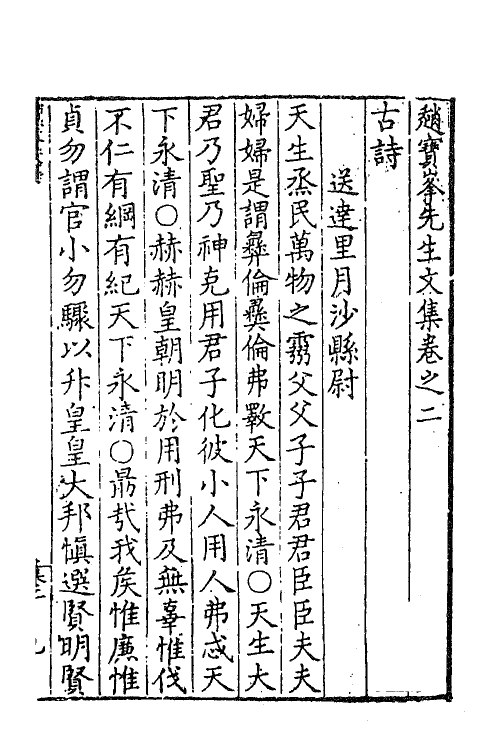 趙寳峯先生文集卷之二
古詩
送達里月沙縣尉
天生烝民萬物之靈父父子子君君臣臣夫夫
婦婦是謂彝倫彝倫弗斁天下永清○天生大
君乃聖乃神克用君子化彼小人用人弗忒天
下永清○赫赫皇朝明於用刑弗及無辜惟伐
不仁有綱有紀天下永清○勗哉我矦惟廉惟
貞勿謂官小勿驟以升皇皇大邦慎選賢明賢